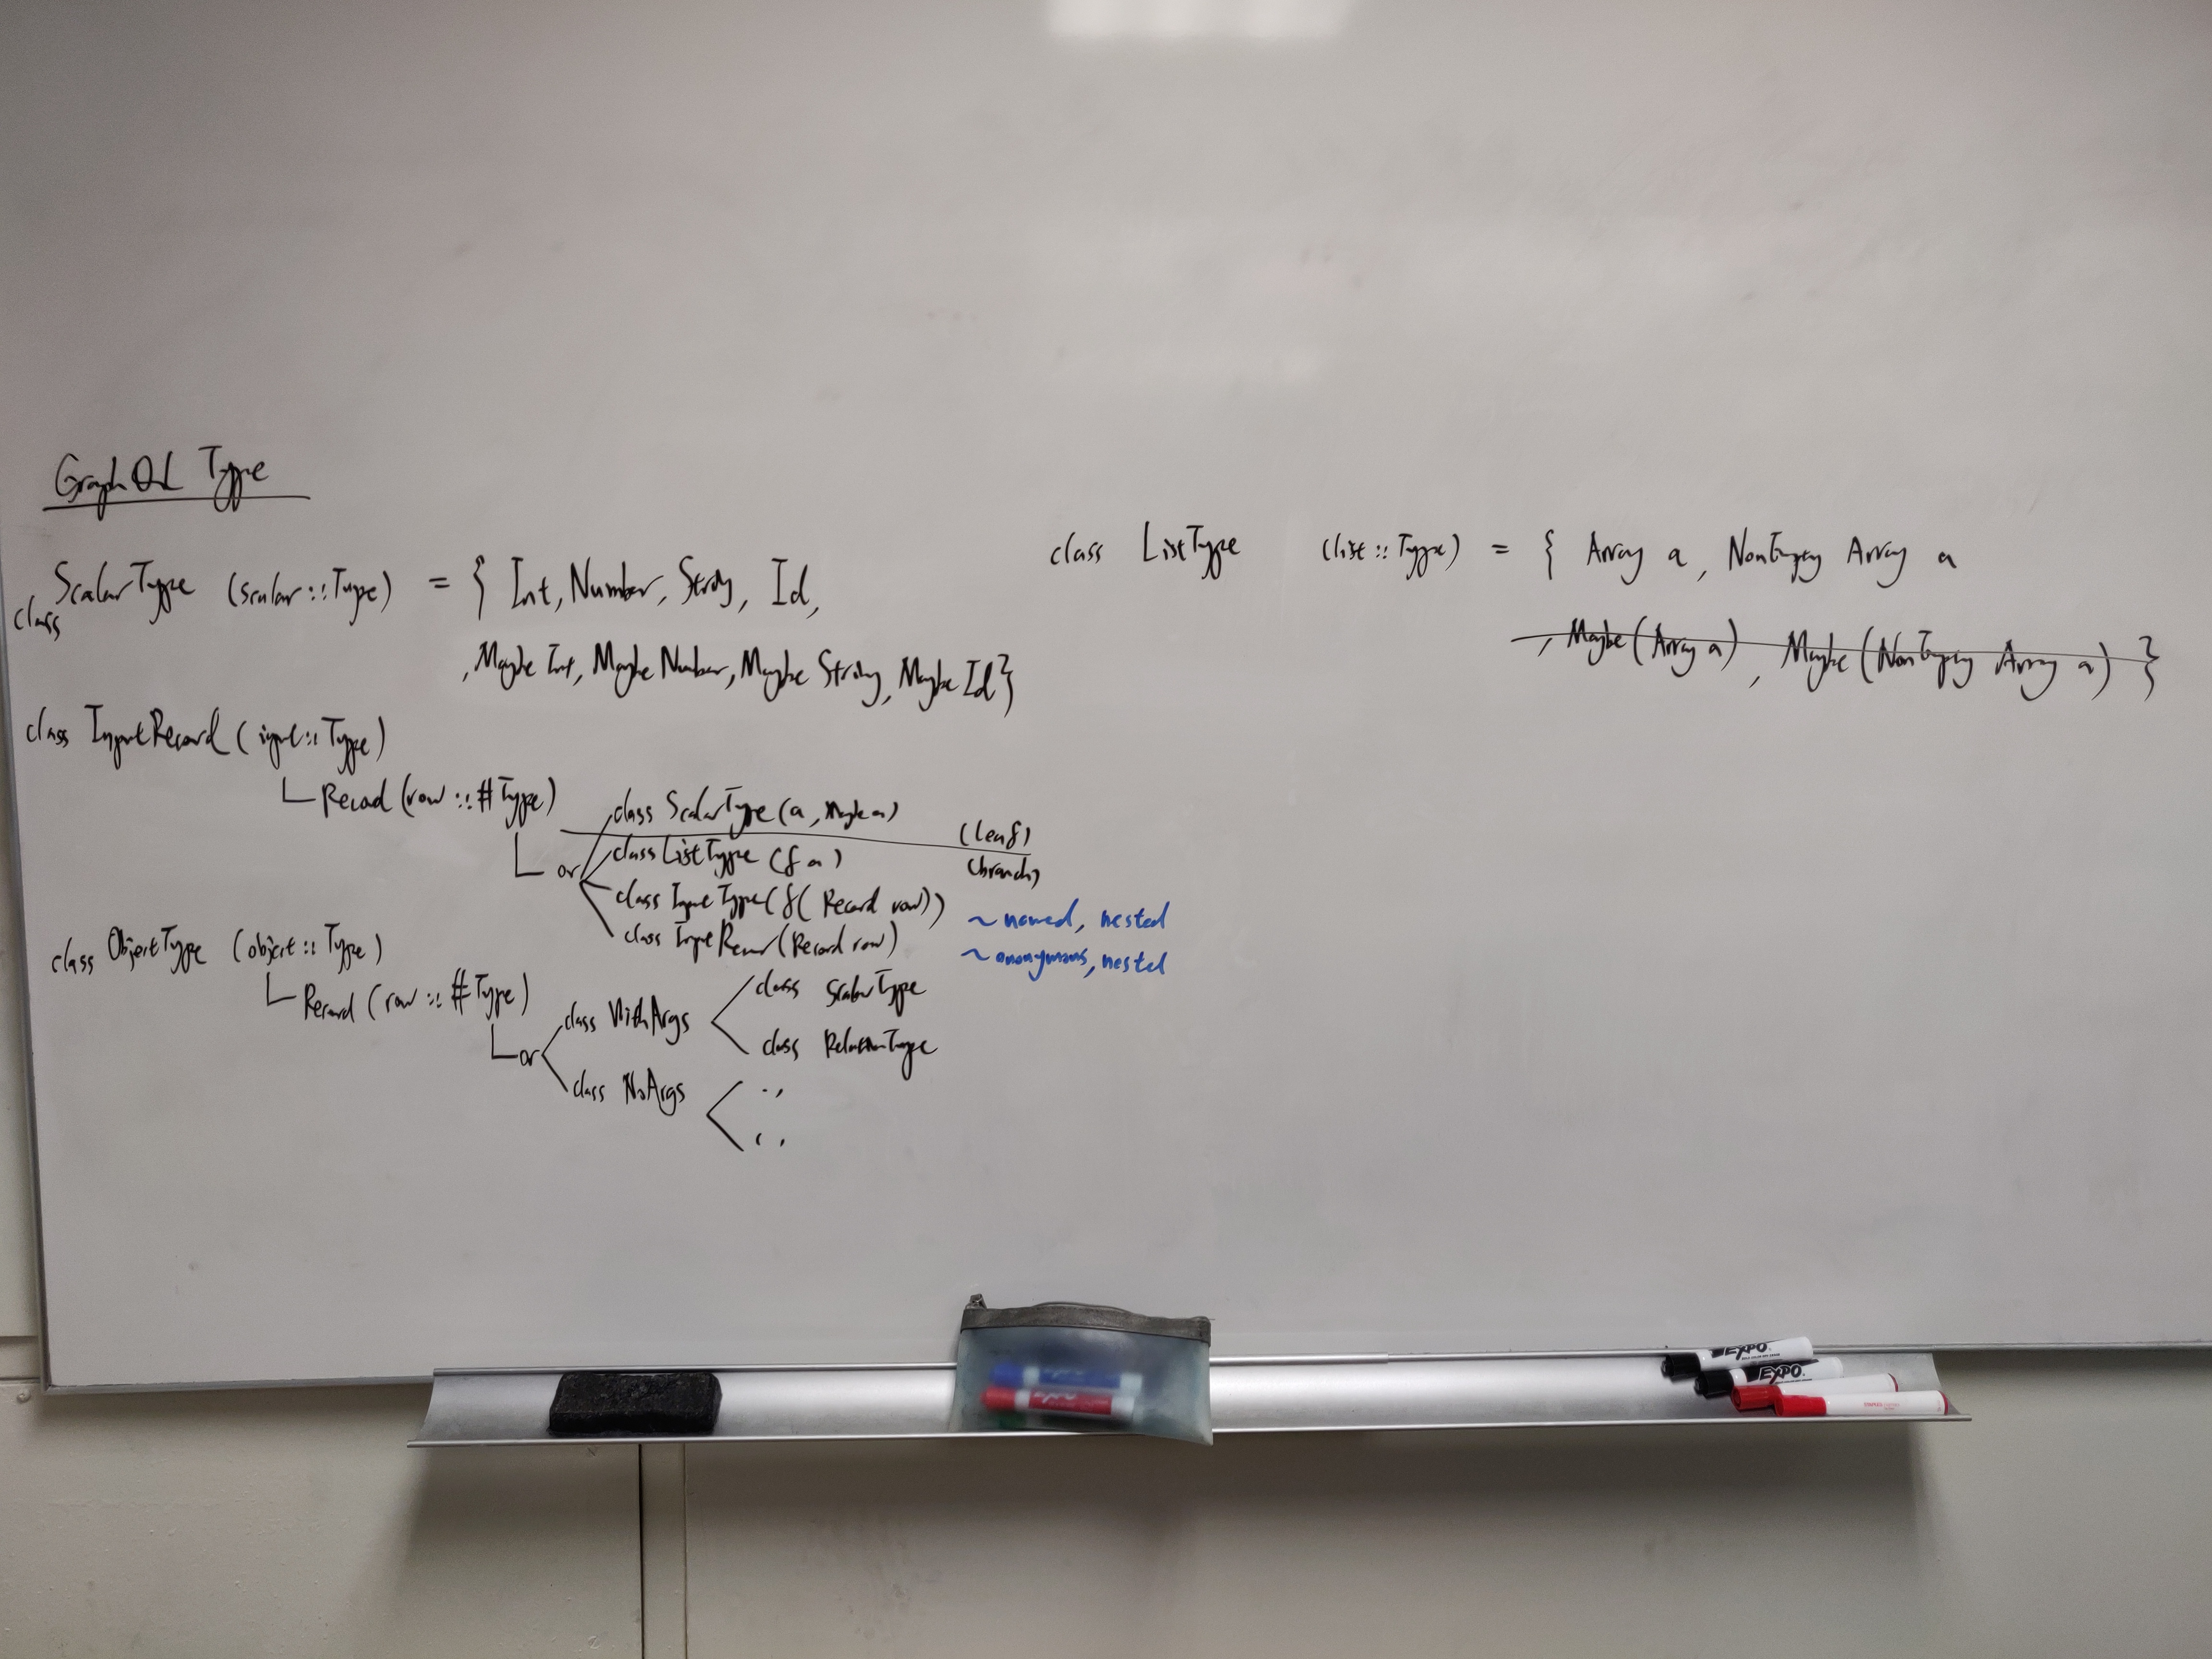 GraphQL Type
class ScalarType (scalar :: Type) = { Int, Number, String, Id,
, Maybe Int, Maybe Number, Maybe String, Maybe Id }
class InputRecord ( input :: Type )
Record (row :: # Type)
or
class ScalarType (a, Maybe a)
(leaf)
class ListType (f a)
(branch)
class InputType (f ( Record row))
~ named, nested
class InputRecord (Record row)
~ anonymous, nested
class ObjectType (object :: Type)
Record (row :: # Type)
or
class WithArgs
class ScalarType
class RelationType
class NoArgs
class ListType (list :: Type) = { Array a, NonEmpty Array a
, Maybe (Array a), Maybe (NonEmpty Array a) }
EXPO
EXPO
EXPO